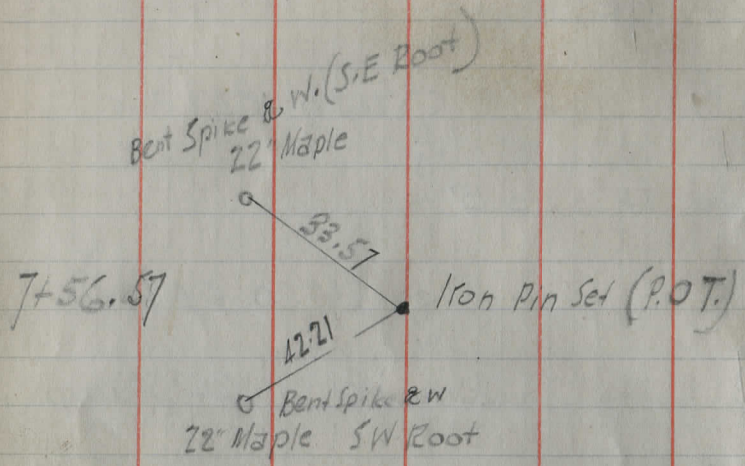 Bent Spike & W. (S.E Root)
22" Maple
33.57
7+56.57
Iron Pin Set (P.O.T.)
42.21
Bent Spike & W
22" Maple SW Root